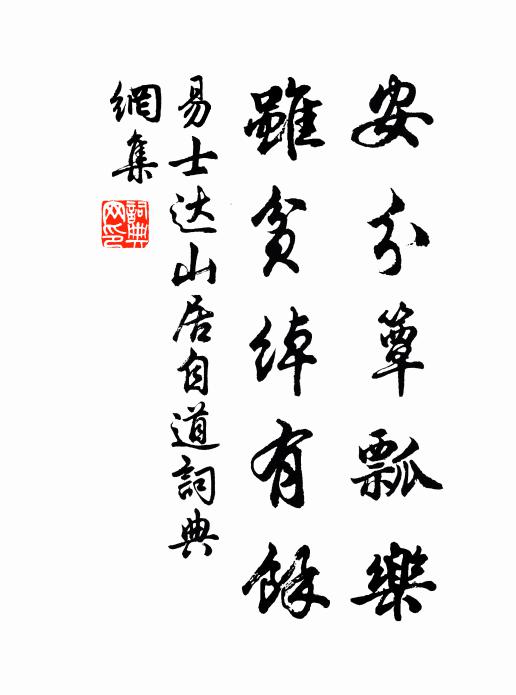 安分簞瓢樂
雖貧綽有餘
易士达山居自道詞典
網集
詞典
网印